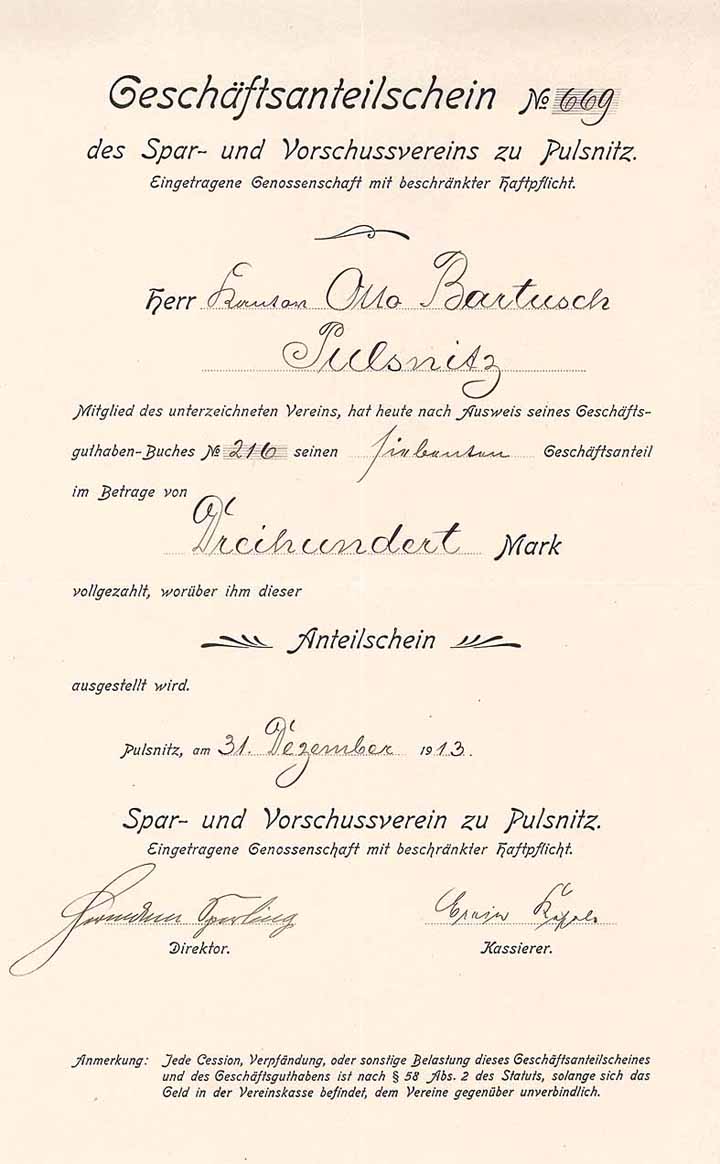 Geschäftsanteilschein No 669
des Spar- und Vorschussvereins zu Pulsnitz.
Eingetragene Genossenschaft mit beschränkter Haftpflicht.
Herr Kantor Otto Bartusch
Pulsnitz
Mitglied des unterzeichneten Vereins, hat heute nach Ausweis seines Geschäfts-
guthaben-Buches No 216 seinen siebenten Geschäftsanteil
im Betrage von
Dreihundert Mark
vollgezahlt, worüber ihm dieser
Anteilschein
ausgestellt wird.
Pulsnitz, am 31. Dezember 1913.
Spar- und Vorschussverein zu Pulsnitz.
Eingetragene Genossenschaft mit beschränkter Haftpflicht.
Hermann Sperling
Direktor. Kassierer.
Anmerkung: Jede Cession, Verpfändung, oder sonstige Belastung dieses Geschäftsanteilscheines
und des Geschäftsguthabens ist nach § 58 Abs. 2 des Statuts, solange sich das
Geld in der Vereinskasse befindet, dem Vereine gegenüber unverbindlich.